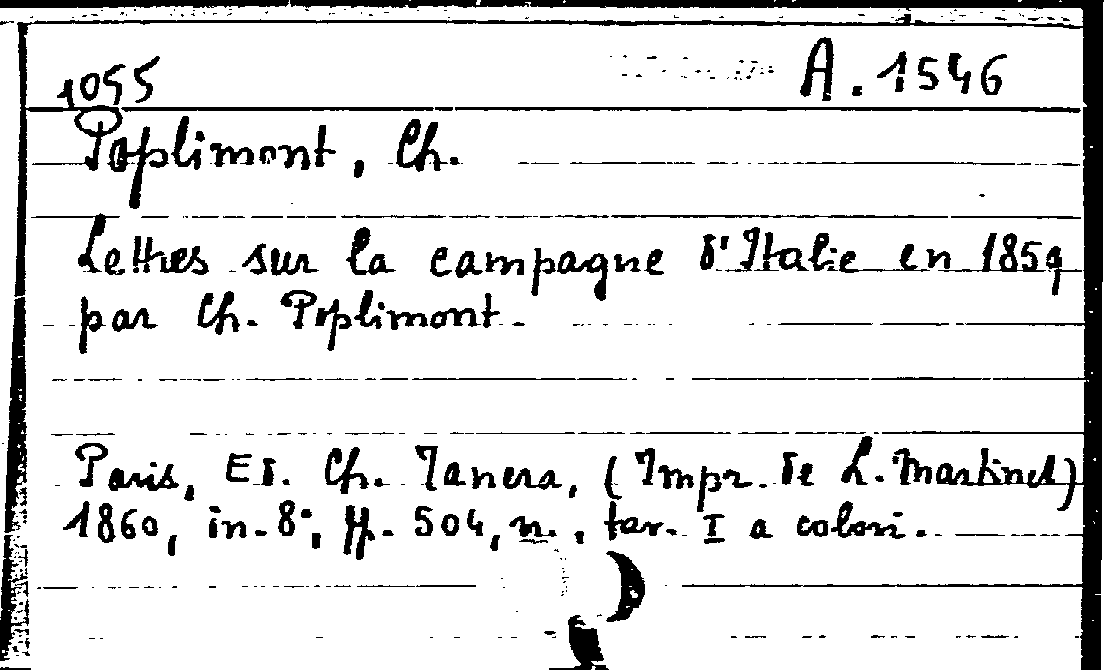 1055 A. 1546
Poplimont, Ch.
Lettres sur la campagne d'Italie en 1859
par Ch. Poplimont.
Paris, Ed. Ch. Tanera, (Impr. de L. Martinet)
1860, in-8°, pp. 504, n., tav. I a colori.